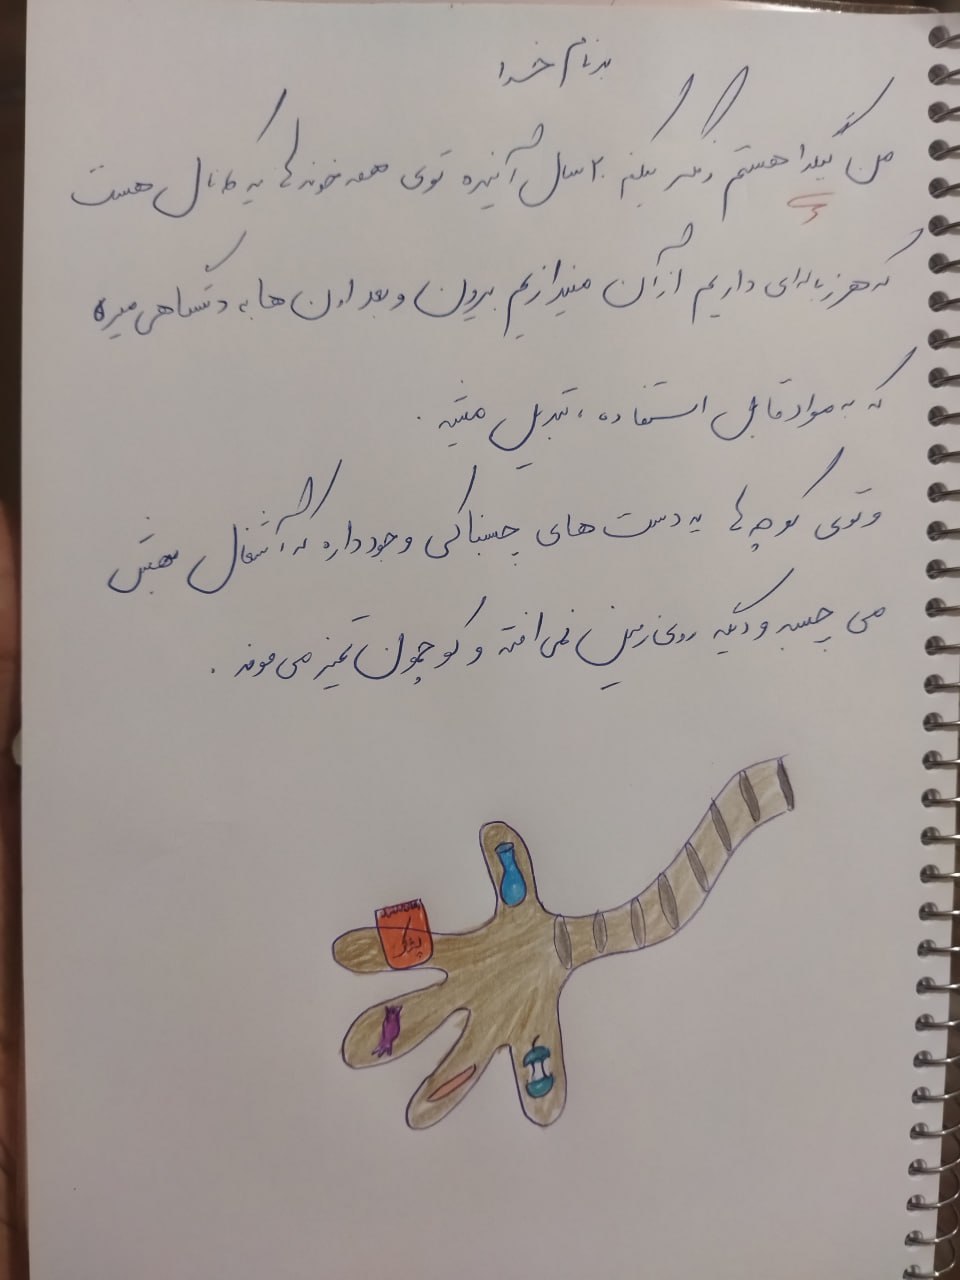 به نام خدا
من گیلدا هستم فکر میکنم ۲۰ سال آینده توی همه خونه ها یه کانال هست
که هر زباله‌ای داریم از آن میندازیم بیرون و بعد اون ها به دستگاهی میره
که به مواد قابل استفاده، تبدیل میشه.
و توی کوچه ها یه دست های چسبناکی وجود داره که آشغال بهش
می چسبه و دیگه روی زمین نمی افته و کوچمون تمیز می مونه.
پفک